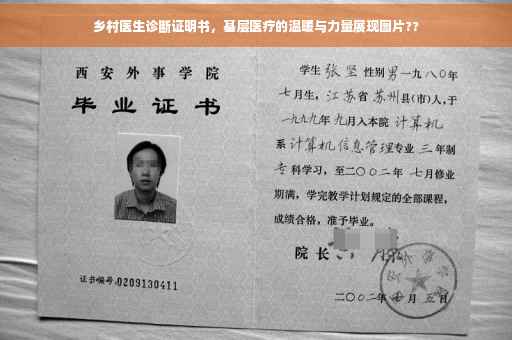 乡村医生诊断证明书，基层医疗的温暖与力量展现图片??
西安外事学院
毕业证书
证书编号:0209130411
学生 张坚 性别 男 一九八〇年
七月生，江苏省 苏州县(市)人，于
一九九九年 九月入本院 计算机
系 计算机信息管理专业 三 年制
专 科学习，至二〇〇二年 七月修业
期满，学完教学计划规定的全部课程，
成绩合格，准予毕业。
院长
二〇〇二年 七 月 五 日